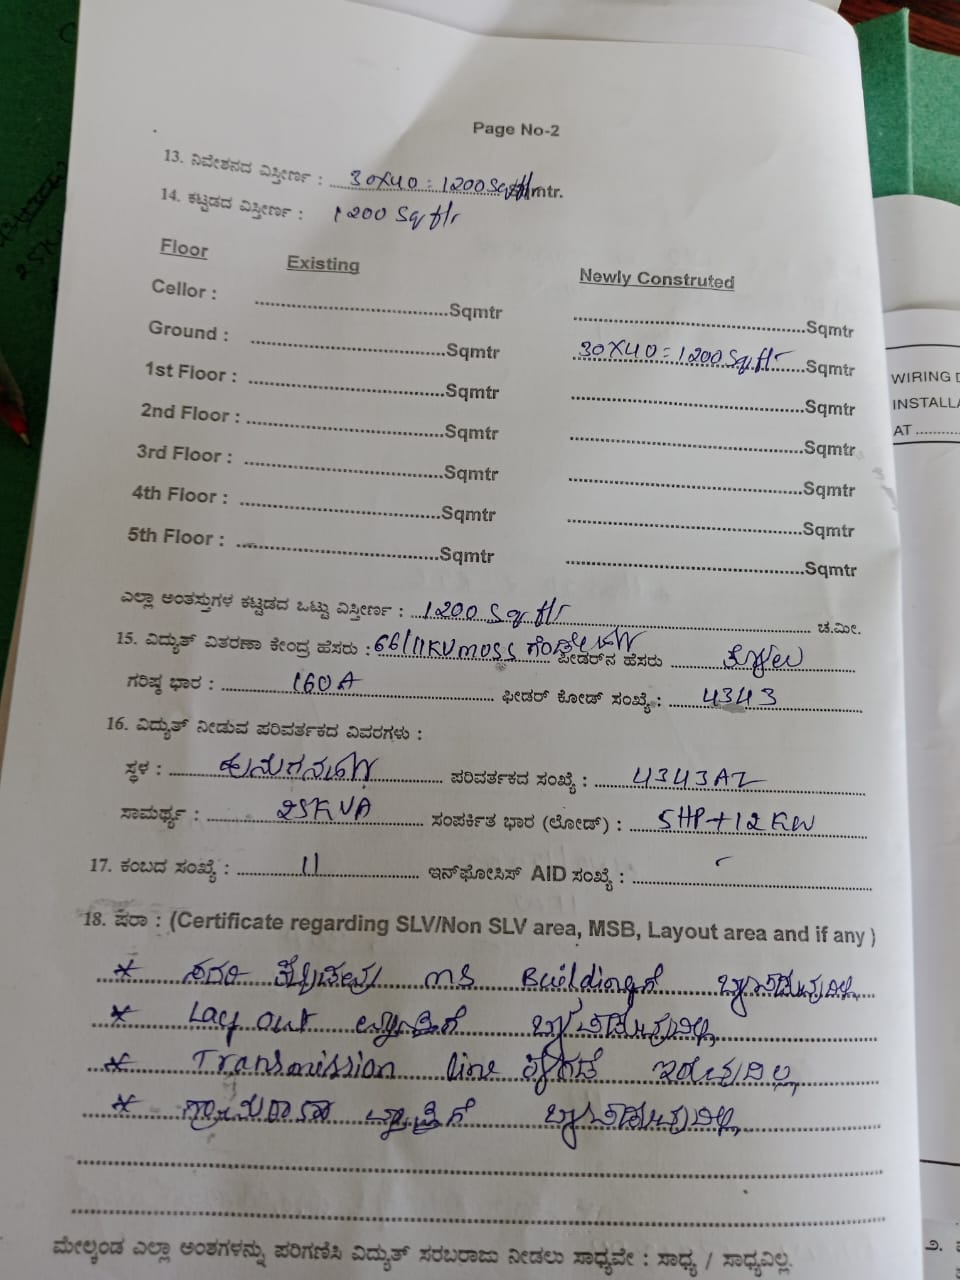 Page No-2
13. ನಿವೇಶನದ ವಿಸ್ತೀರ್ಣ : 30X40 = 1200 Sq mtr.
14. ಕಟ್ಟಡದ ವಿಸ್ತೀರ್ಣ : 1200 Sq ftr
Floor Existing Newly Construted
Cellor : ........Sqmtr ........Sqmtr
Ground : ........Sqmtr 30X40 = 1200 Sq.ftr Sqmtr
1st Floor : ........Sqmtr ........Sqmtr
2nd Floor : ........Sqmtr ........Sqmtr
3rd Floor : ........Sqmtr ........Sqmtr
4th Floor : ........Sqmtr ........Sqmtr
5th Floor : ........Sqmtr ........Sqmtr
ಎಲ್ಲಾ ಅಂತಸ್ತುಗಳ ಕಟ್ಟಡದ ಒಟ್ಟು ವಿಸ್ತೀರ್ಣ : 1200 Sq ftr ಚ.ಮೀ.
15. ವಿದ್ಯುತ್ ವಿತರಣಾ ಕೇಂದ್ರ ಹೆಸರು : 66/11KV MUSS ಫೀಡರ್‌ನ ಹೆಸರು
ಗರಿಷ್ಠ ಭಾರ : 160A ಫೀಡರ್ ಕೋಡ್ ಸಂಖ್ಯೆ : 4343
16. ವಿದ್ಯುತ್ ನೀಡುವ ಪರಿವರ್ತಕದ ವಿವರಗಳು :
ಸ್ಥಳ : ಪರಿವರ್ತಕದ ಸಂಖ್ಯೆ : 4343AZ
ಸಾಮರ್ಥ್ಯ : 25KVA ಸಂಪರ್ಕಿತ ಭಾರ (ಲೋಡ್) : 5HP+12KW
17. ಕಂಬದ ಸಂಖ್ಯೆ : 11 ಇನ್‌ಫೋಸಿಸ್ AID ಸಂಖ್ಯೆ :
18. ಷರಾ : (Certificate regarding SLV/Non SLV area, MSB, Layout area and if any )
* ಸದರಿ MS Buildingಗೆ
* Lay out ವ್ಯಾಪ್ತಿಗೆ
* Transmission line
* ವ್ಯಾಪ್ತಿಗೆ
ಮೇಲ್ಕಂಡ ಎಲ್ಲಾ ಅಂಶಗಳನ್ನು ಪರಿಗಣಿಸಿ ವಿದ್ಯುತ್ ಸರಬರಾಜು ನೀಡಲು ಸಾಧ್ಯವೇ : ಸಾಧ್ಯ / ಸಾಧ್ಯವಿಲ್ಲ.
WIRING
AT